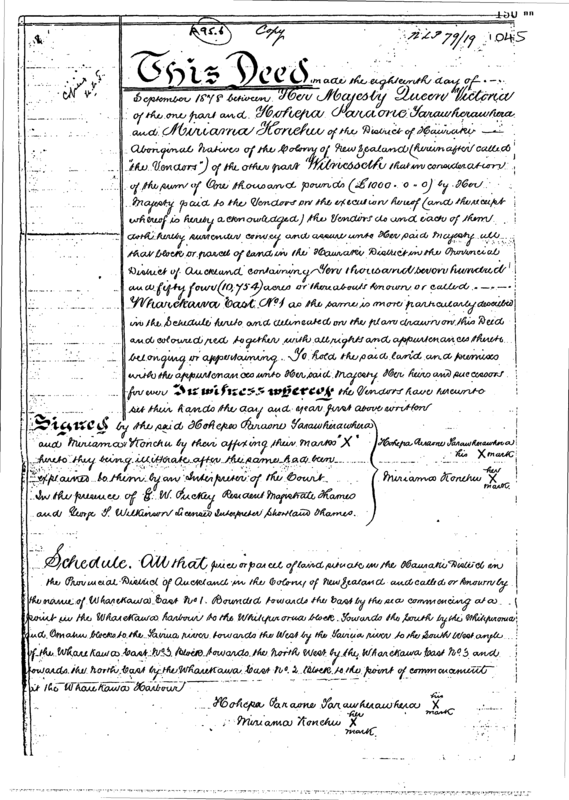 150
A 95.6
Copy
NLP 79/19
1045
This Deed made the eighteenth day of
September 1878 between Her Majesty Queen Victoria
of the one part and Hohepa Paraone Tarawherawhera
and Miriama Konehu of the District of Hauraki
Aboriginal Natives of the Colony of New Zealand (hereinafter called
"the Vendors") of the other part Witnesseth that in consideration
of the sum of One thousand pounds (£1000-0-0) by Her
Majesty paid to the Vendors on the execution hereof (and the receipt
whereof is hereby acknowledged) the Vendors do and each of them
doth hereby surrender convey and assure unto Her said Majesty all
that block or parcel of land in the Hauraki District in the Provincial
District of Auckland containing Ten thousand seven hundred
and fifty four (10,754) acres or thereabouts known or called
Wharekawa East No 1 as the same is more particularly described
in the Schedule hereto and delineated on the plan drawn on this Deed
and coloured red together with all rights and appurtenances thereto
belonging or appertaining To hold the said land and premises
with the appurtenances unto Her said Majesty Her heirs and successors
for ever In witness whereof the Vendors have hereunto
set their hands the day and year first above written
Signed by the said Hohepa Paraone Tarawherawhera
and Miriama Konehu by their affixing their marks "X"
hereto they being illiterate after the same had been
explained to them by an Interpreter of the Court
In the presence of E. W. Puckey Resident Magistrate Thames
and George T. Wilkinson Licensed Interpreter Shortland Thames.
Hohepa Paraone Tarawherawhera
his X mark
Miriama Konehu her X mark
Schedule. All that piece or parcel of land situate in the Hauraki District in
the Provincial District of Auckland in the Colony of New Zealand and called or known by
the name of Wharekawa East No 1. Bounded towards the East by the sea commencing at a
point in the Wharekawa harbour to the Whitiporoua block. Towards the South by the Whitiporoua
and Omahu blocks to the Tairua river towards the West by the Tairua river to the South West angle
of the Wharekawa East No 3 block towards the North West by the Wharekawa East No 3 and
towards the North East by the Wharekawa East No. 2 block to the point of commencement
at the Wharekawa Harbour
Hohepa Paraone Tarawherawhera his X mark
Miriama Konehu her X mark.